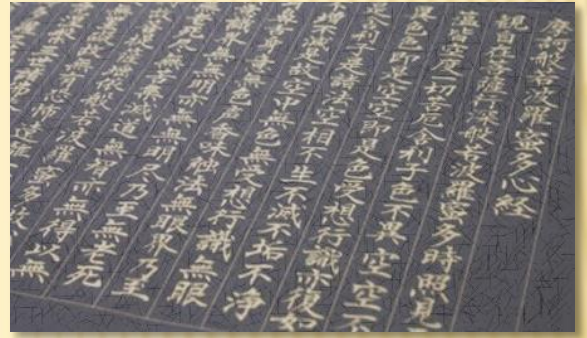 摩訶般若波羅蜜多心経
観自在菩薩行深般若波羅蜜多時照見
蘊皆空度一切苦厄舎利子色不異空空不
異色色即是空空即是色受想行識亦復如
是舎利子是諸法空相不生不滅不垢不浄
不増不減是故空中無色無受想行識無眼
鼻舌身意無色声香味触法無眼界乃至
無意識界無無明亦無無明尽乃至無老死
老死尽無苦集滅道無智亦無得以無
菩提薩埵依般若波羅蜜多故
罣礙無有恐怖遠離
三世諸仏